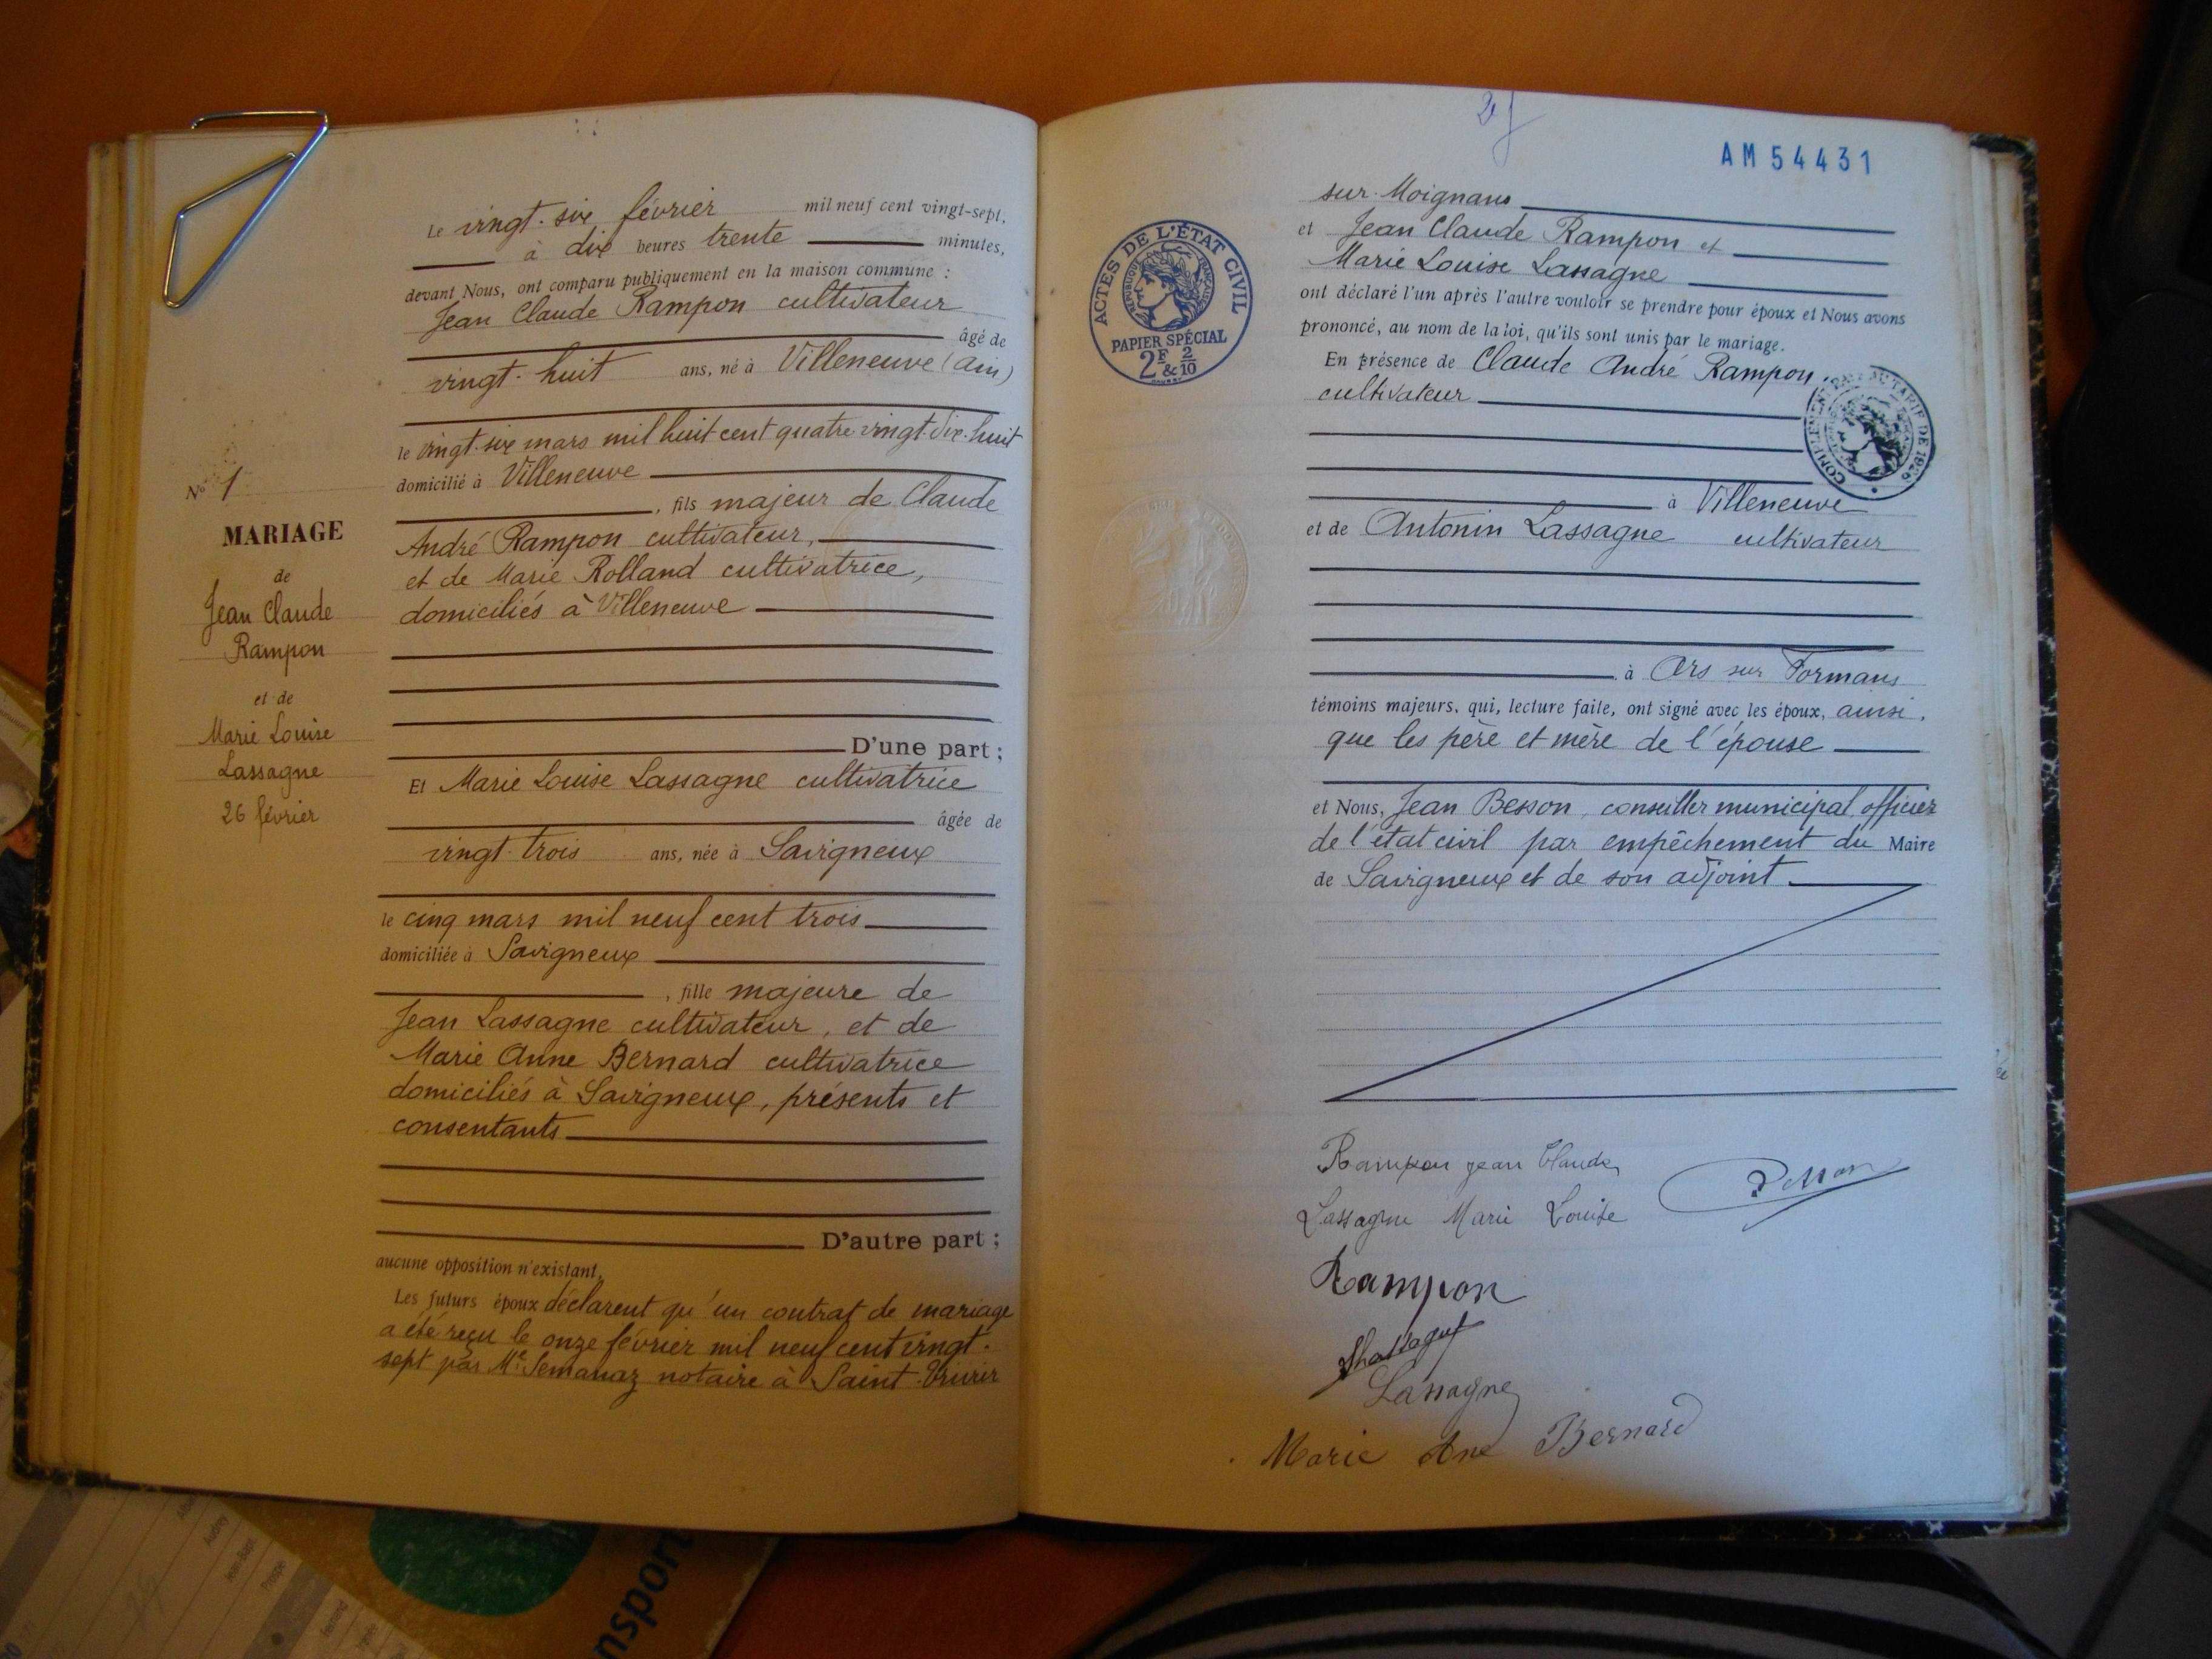 Nº 1
MARIAGE
de
Jean Claude
Rampon
et de
Marie Louise
Lassagne
26 février
Le vingt-six février mil neuf cent vingt-sept,
à dix heures trente minutes,
devant Nous, ont comparu publiquement en la maison commune :
Jean Claude Rampon cultivateur
âgé de
vingt-huit ans, né à Villeneuve (Ain)
le vingt-six mars mil huit cent quatre-vingt-dix-huit
domicilié à Villeneuve
, fils majeur de Claude
André Rampon cultivateur,
et de Marie Rolland cultivatrice,
domiciliés à Villeneuve
D'une part ;
Et Marie Louise Lassagne cultivatrice
âgée de
vingt-trois ans, née à Savigneux
le cinq mars mil neuf cent trois
domiciliée à Savigneux
, fille majeure de
Jean Lassagne cultivateur, et de
Marie Anne Bernard cultivatrice
domiciliés à Savigneux, présents et
consentants
D'autre part ;
aucune opposition n'existant.
Les futurs époux déclarent qu'un contrat de mariage
a été reçu le onze février mil neuf cent vingt-
sept par Me Semanaz notaire à Saint-Trivier
AM 54431
ACTES DE L'ÉTAT CIVIL
RÉPUBLIQUE FRANÇAISE
PAPIER SPÉCIAL
2F & 2/10
sur-Moignans
et Jean Claude Rampon et
Marie Louise Lassagne
ont déclaré l'un après l'autre vouloir se prendre pour époux et Nous avons
prononcé, au nom de la loi, qu'ils sont unis par le mariage.
En présence de Claude André Rampon,
cultivateur
COMPLÉMENT TARIF DE 1926
à Villeneuve
et de Antonin Lassagne cultivateur
à Ars sur Formans
témoins majeurs, qui, lecture faite, ont signé avec les époux, ainsi
que les père et mère de l'épouse
et Nous, Jean Besson, conseiller municipal, officier
de l'état civil par empêchement du Maire
de Savigneux et de son adjoint
Rampon jean Claude
Besson
Lassagne Marie Louise
Rampon
Lassagne
Marie Ane Bernard
nsport